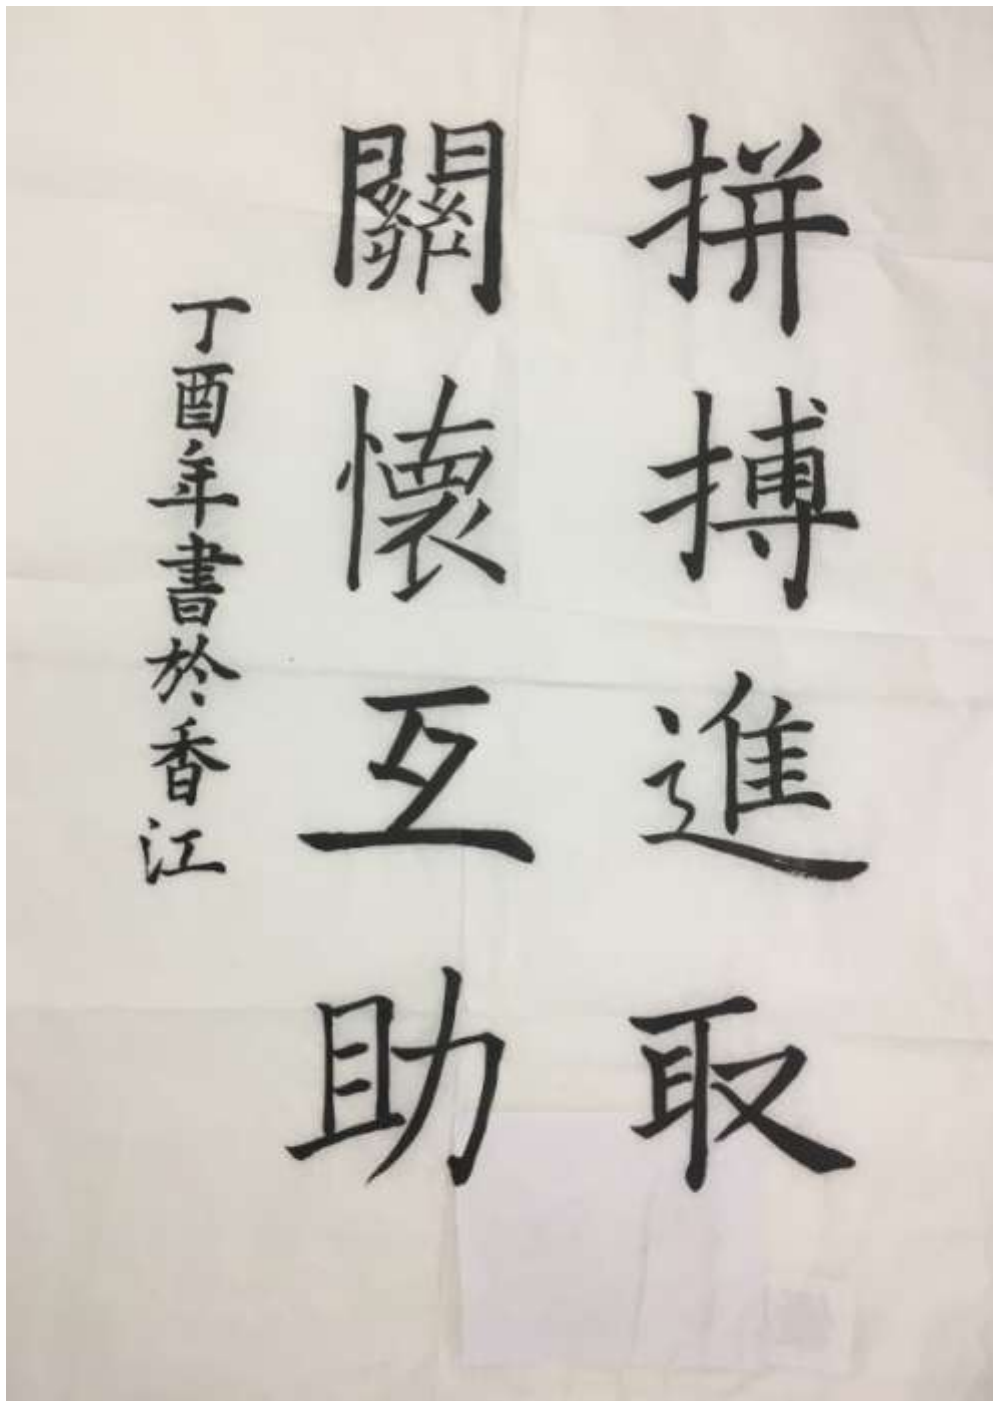 拼搏進取
關懷互助
丁酉年書於香江